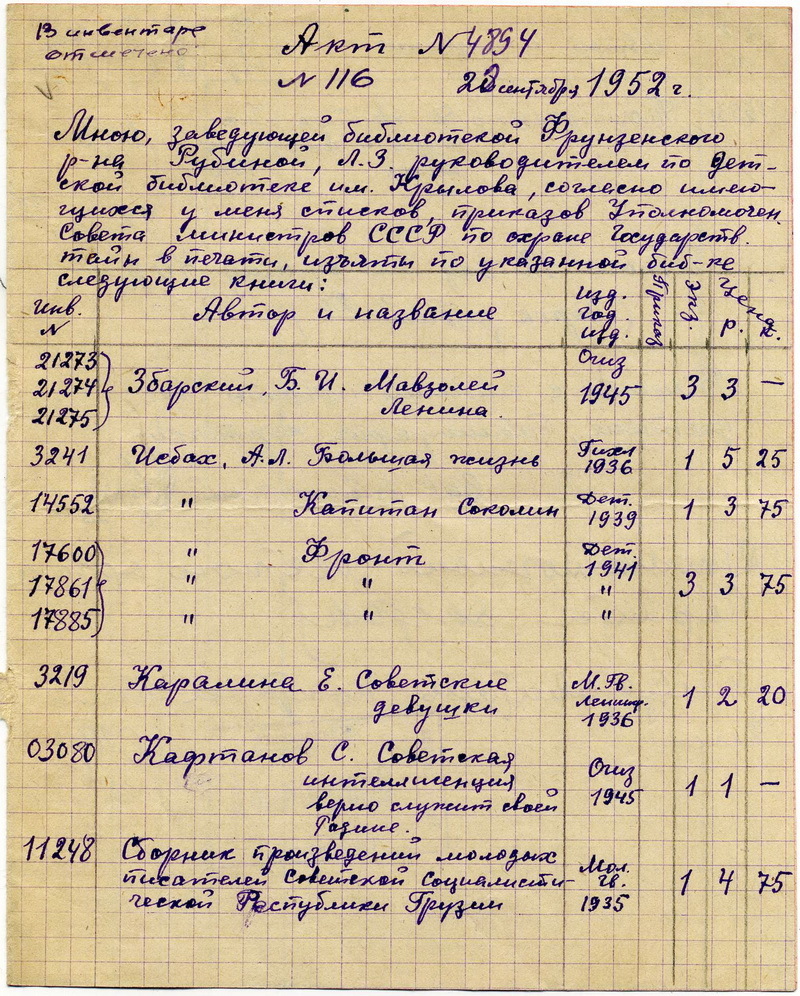 В инвентаре
отмечено
Акт № 4894
№ 116 22 сентября 1952 г.
Мною, заведующей библиотекой Фрунзенского
р-на Рубиной, Л.З. руководителем по дет-
ской библиотеке им. Крылова, согласно имею-
щихся у меня списков, приказов Уполномочен.
Совета министров СССР по охране Государств.
тайн в печати, изъяты по указанной биб-ке
следующие книги:
Инв. № Автор и название изд. год. изд. Приказ Экз. Цена р. к.
21273 Огиз
21274 Збарский, Б. И. Мавзолей 1945 3 3 —
21275 Ленина.
3241 Исбах, А.Л. Большая жизнь Гихл 1936 1 5 25
14552 " Капитан Соколин Дет. 1939 1 3 75
17600 " Фронт Дет. 1941
17861 " " " 3 3 75
17885 " " "
3219 Каралина Е. Советские М. Гв.
девушки Ленингр. 1936 1 2 20
03080 Кафтанов С. Советская
интеллигенция Огиз
верно служит своей 1945 1 1 —
Родине.
11248 Сборник произведений молодых
писателей Советской Социалисти- Мол. гв. 1 4 75
ческой Республики Грузии 1935